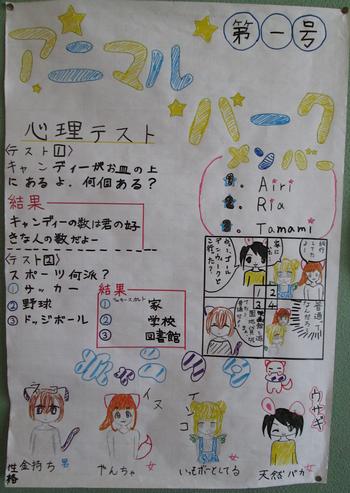 第一号
アニマル
パーク
心理テスト
〈テスト①〉
キャンディーがお皿の上
にあるよ。何個ある？
結果
キャンディーの数は君の好
きな人の数だよー
〈テスト②〉
スポーツ何派？
① サッカー
② 野球
③ ドッジボール
結果
ラッキースポット
① 家
② 学校
③ 図書館
メンバー
1. Airi
2. Ria
3. Tamami
イヌ
インコ
ウサギ
性格
金持ち 男
やんちゃ 女
いつもボーとしてる 女
天然バカ 女